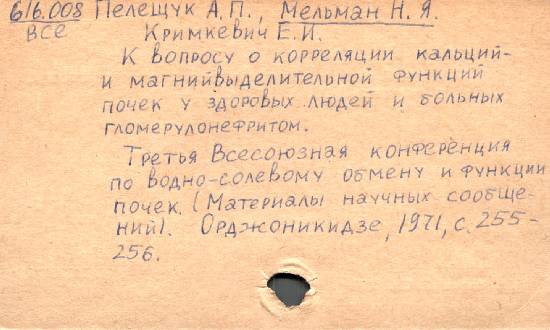 616.008 Пелещук А.П., Мельман Н.Я.
ВСЕ Кримкевич Е.И.
К вопросу о корреляции кальций-
и магнийвыделительной функций
почек у здоровых людей и больных
гломерулонефритом.
Третья Всесоюзная конференция
по водно-солевому обмену и функции
почек. (Материалы научных сообще-
ний). Орджоникидзе, 1971, с. 255-
256.